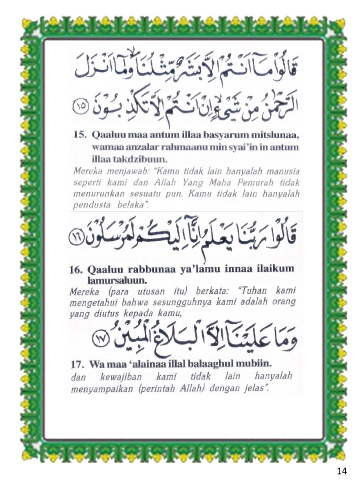 قَالُوا مَآ اَنْتُمْ اِلَّا بَشَرٌ مِّثْلُنَا وَمَآ اَنْزَلَ
الرَّحْمٰنُ مِنْ شَيْءٍ اِنْ اَنْتُمْ اِلَّا تَكْذِبُوْنَ ١٥
15. Qaaluu maa antum illaa basyarum mitslunaa,
wamaa anzalar rahmaanu min syai'in in antum
illaa takdzibuun.
Mereka menjawab: "Kamu tidak lain hanyalah manusia
seperti kami dan Allah Yang Maha Pemurah tidak
menurunkan sesuatu pun. Kamu tidak lain hanyalah
pendusta belaka".
قَالُوْا رَبُّنَا يَعْلَمُ اِنَّآ اِلَيْكُمْ لَمُرْسَلُوْنَ ١٦
16. Qaaluu rabbunaa ya'lamu innaa ilaikum
lamursaluun.
Mereka (para utusan itu) berkata: "Tuhan kami
mengetahui bahwa sesungguhnya kami adalah orang
yang diutus kepada kamu,
وَمَا عَلَيْنَآ اِلَّا الْبَلَاغُ الْمُبِيْنُ ١٧
17. Wa maa 'alainaa illal balaaghul mubiin.
dan kewajiban kami tidak lain hanyalah
menyampaikan (perintah Allah) dengan jelas".
14